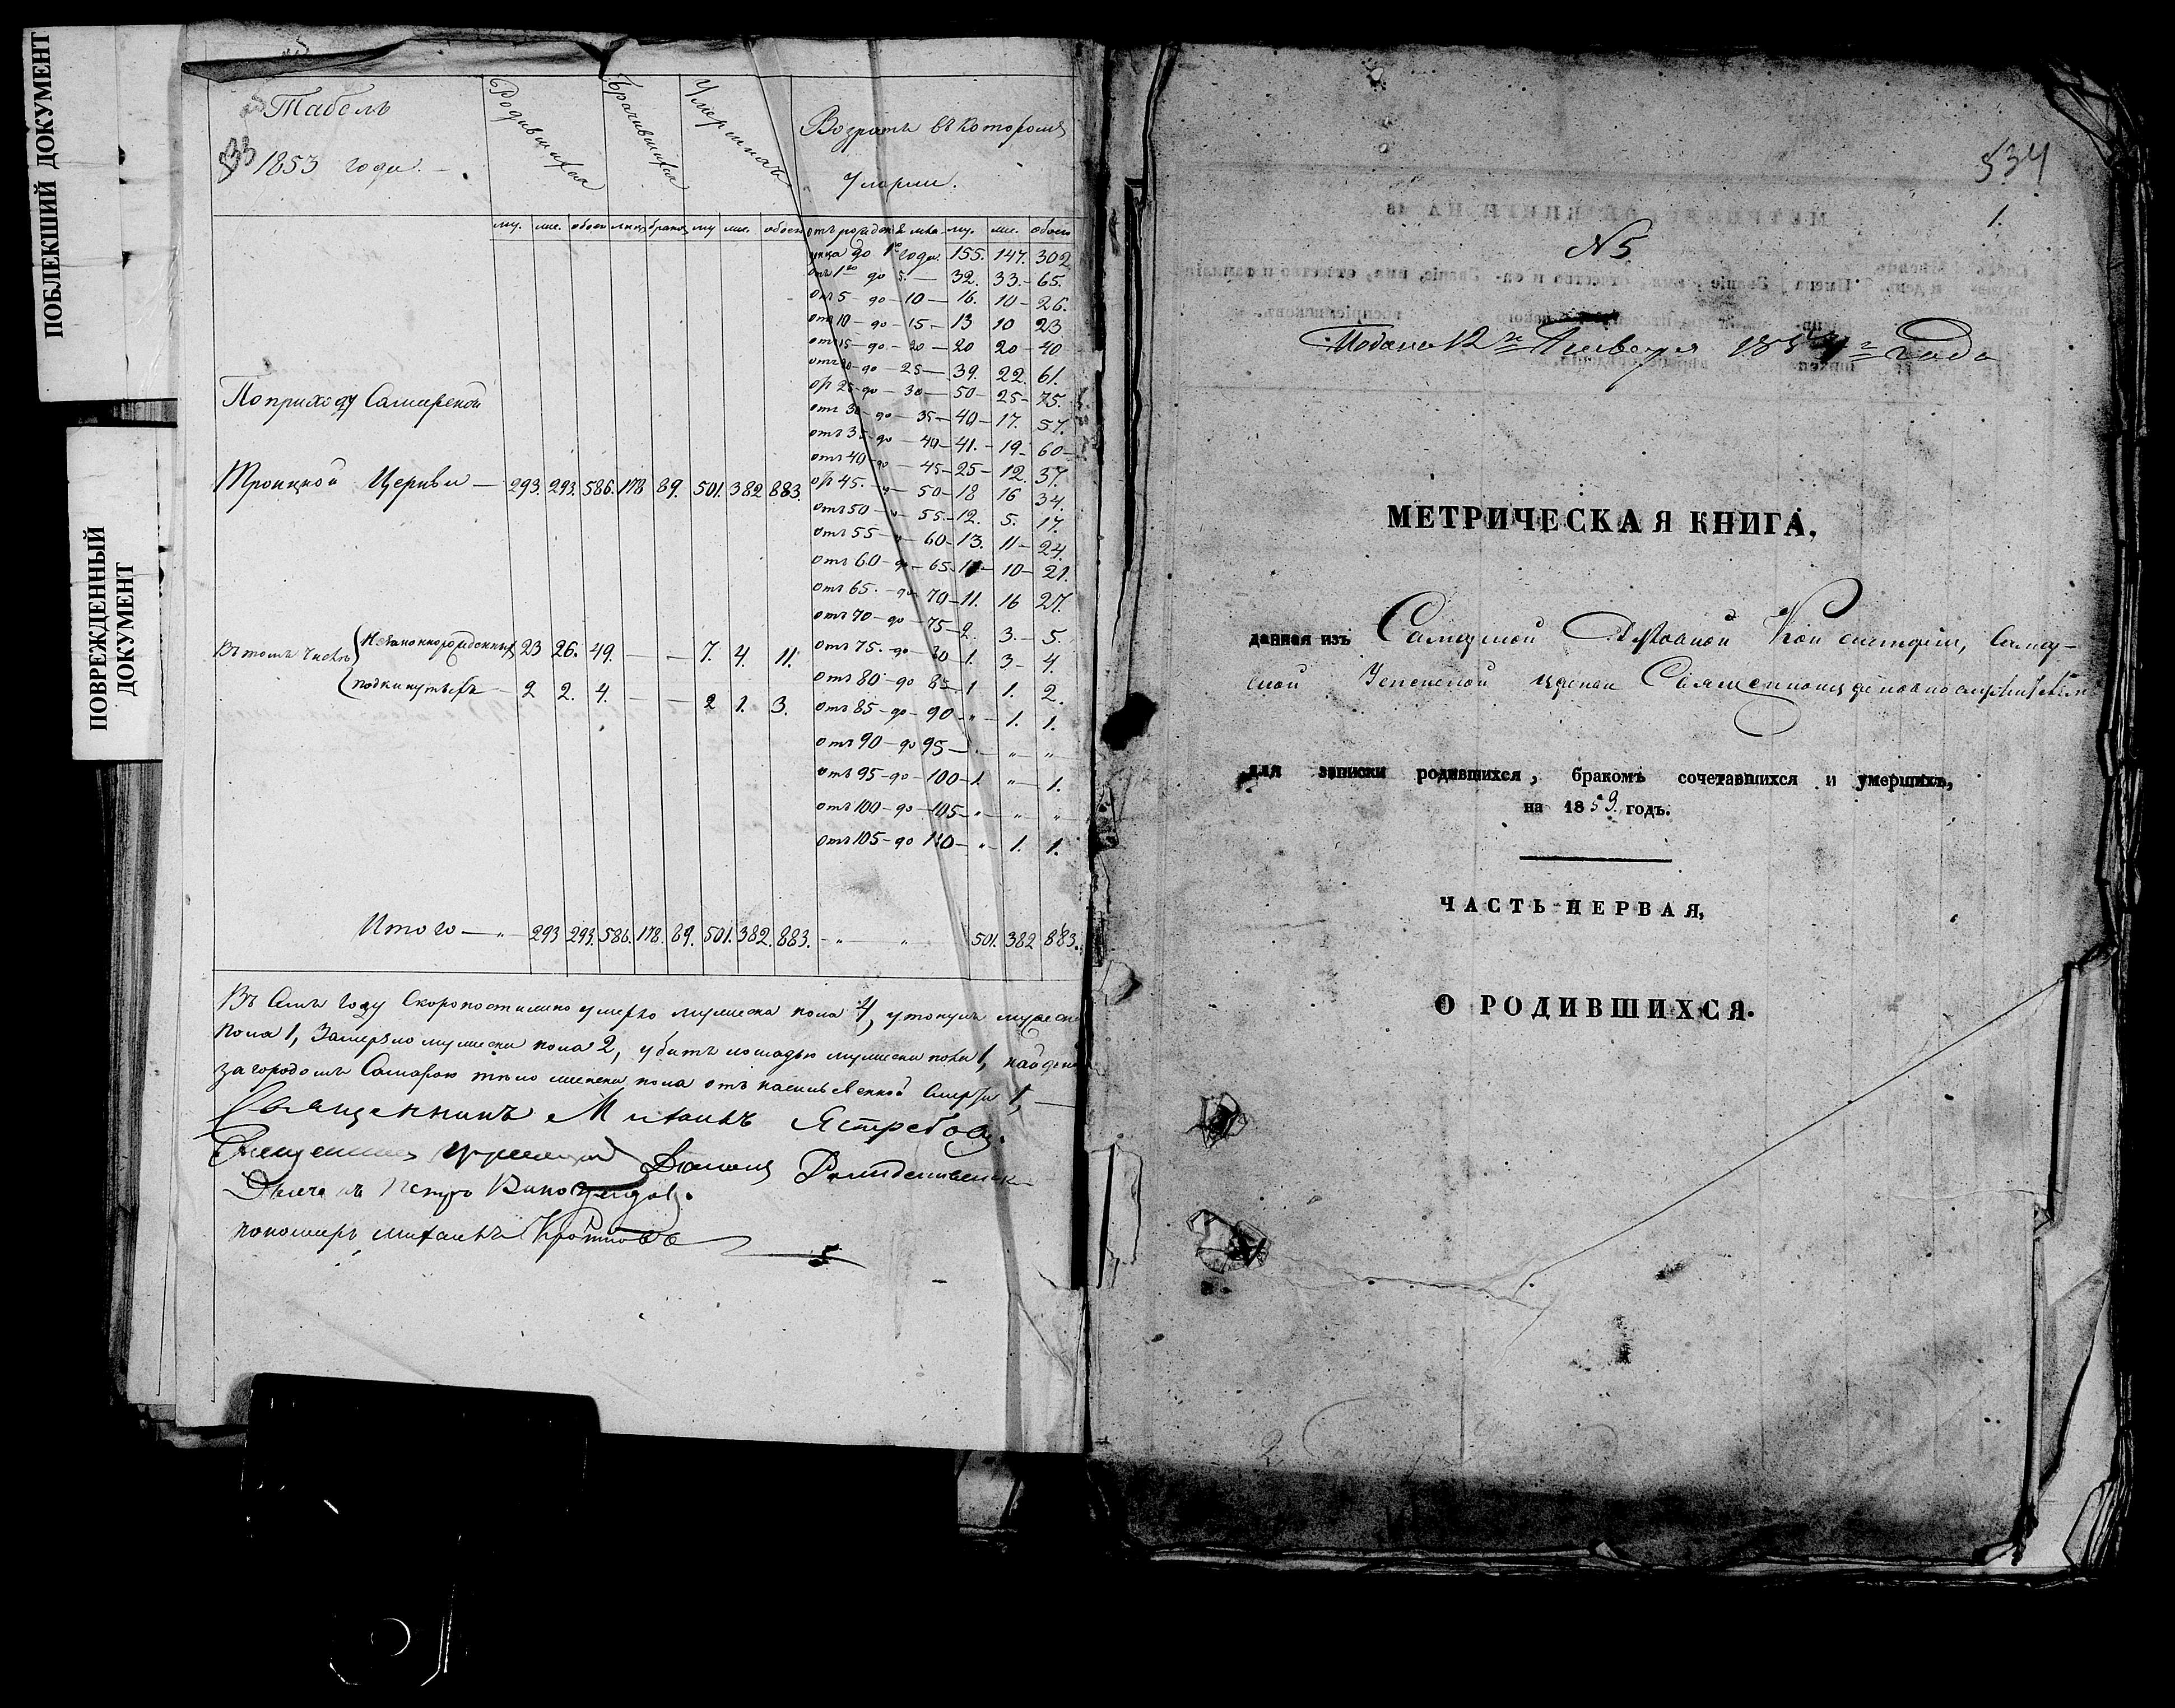 ПОБЛЕКШИЙ ДОКУМЕНТ
ПОВРЕЖДЕННЫЙ
ДОКУМЕНТ
Табель
1853 года.
Родившихся
Бračившихся
Умершихъ
Возрастъ въ которомъ
Умерли.
му. же. обоего лицъ браков му. же. обоего отъ рожден. му. же. обоего
до 1го года. 155. 147. 302
отъ 1го до 5. — 32. 33. 65.
отъ 5 до 10 — 16. 10 26.
отъ 10 до 15 — 13 10 23
отъ 15 до 20 — 20 20 40
отъ 20 до 25 — 39. 22. 61.
отъ 25 до 30 — 50 25 75.
отъ 30 до 35 — 40 17. 57.
отъ 35 до 40 — 41. 19 60
отъ 40 до 45 — 25 12. 37.
отъ 45 — 50 — 18 16 34.
отъ 50 — 55 — 12. 5. 17.
отъ 55 — 60 — 13. 11 24.
отъ 60 до 65 — 10 21.
отъ 65 до 70 — 11. 16 27.
отъ 70 до 75 — 2. 3. 5.
отъ 75 до 80 — 1. 3 4.
отъ 80 до 85 — 1 1. 2.
отъ 85 до 90 — „ 1. 1.
отъ 90 до 95 — „ „ „
отъ 95 до 100 — 1. „ 1.
отъ 100 до 105 — „ „ „
отъ 105 до 110 — „ 1. 1.
По приходу Самарской
Троицкой Церкви — 293. 293. 586. 178 89. 501. 382 883
Въ томъ числѣ незаконнорожденныхъ 23 26. 49. — — 7. 4. 11.
подкинутыхъ — 2 2. 4. — 2 1. 3.
Итого — „ — 293 293. 586. 178. 89. 501. 382. 883. — „ — „ 501. 382 883.
Въ семъ году скоропостижно умерло мужеска пола 4, утонулъ мужеска
пола 1, замерзло мужеска пола 2, убитъ лошадью мужеска пола 1, найдено
за городомъ Самарою тѣло женска пола отъ насильственной смерти 1, —
Священникъ Михаилъ Ястребовъ.
Дьячекъ Петръ Виноградовъ.
пономарь Михаилъ Кротковъ
534
1.
№ 5
Подана 12го Января 1854го года
МЕТРИЧЕСКАЯ КНИГА,
данная изъ Самарской Духовной Консисторіи, Самар-
ской Успенской церкви Священноцерковнослужителямъ
для записки родившихся, бракомъ сочетавшихся и умершихъ,
на 1853. годъ.
ЧАСТЬ ПЕРВАЯ,
О РОДИВШИХСЯ.